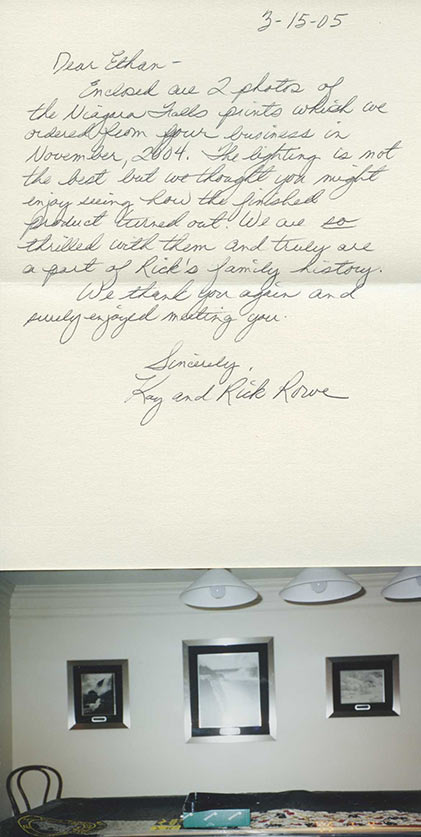 3-15-05
Dear Ethan -
Enclosed are 2 photos of
the Niagara Falls prints which we
ordered from your business in
November, 2004. The lighting is not
the best but we thought you might
enjoy seeing how the finished
product turned out. We are so
thrilled with them and truly are
a part of Rick's family history.
We thank you again and
surely enjoyed meeting you.
Sincerely,
Kay and Rick Rowe